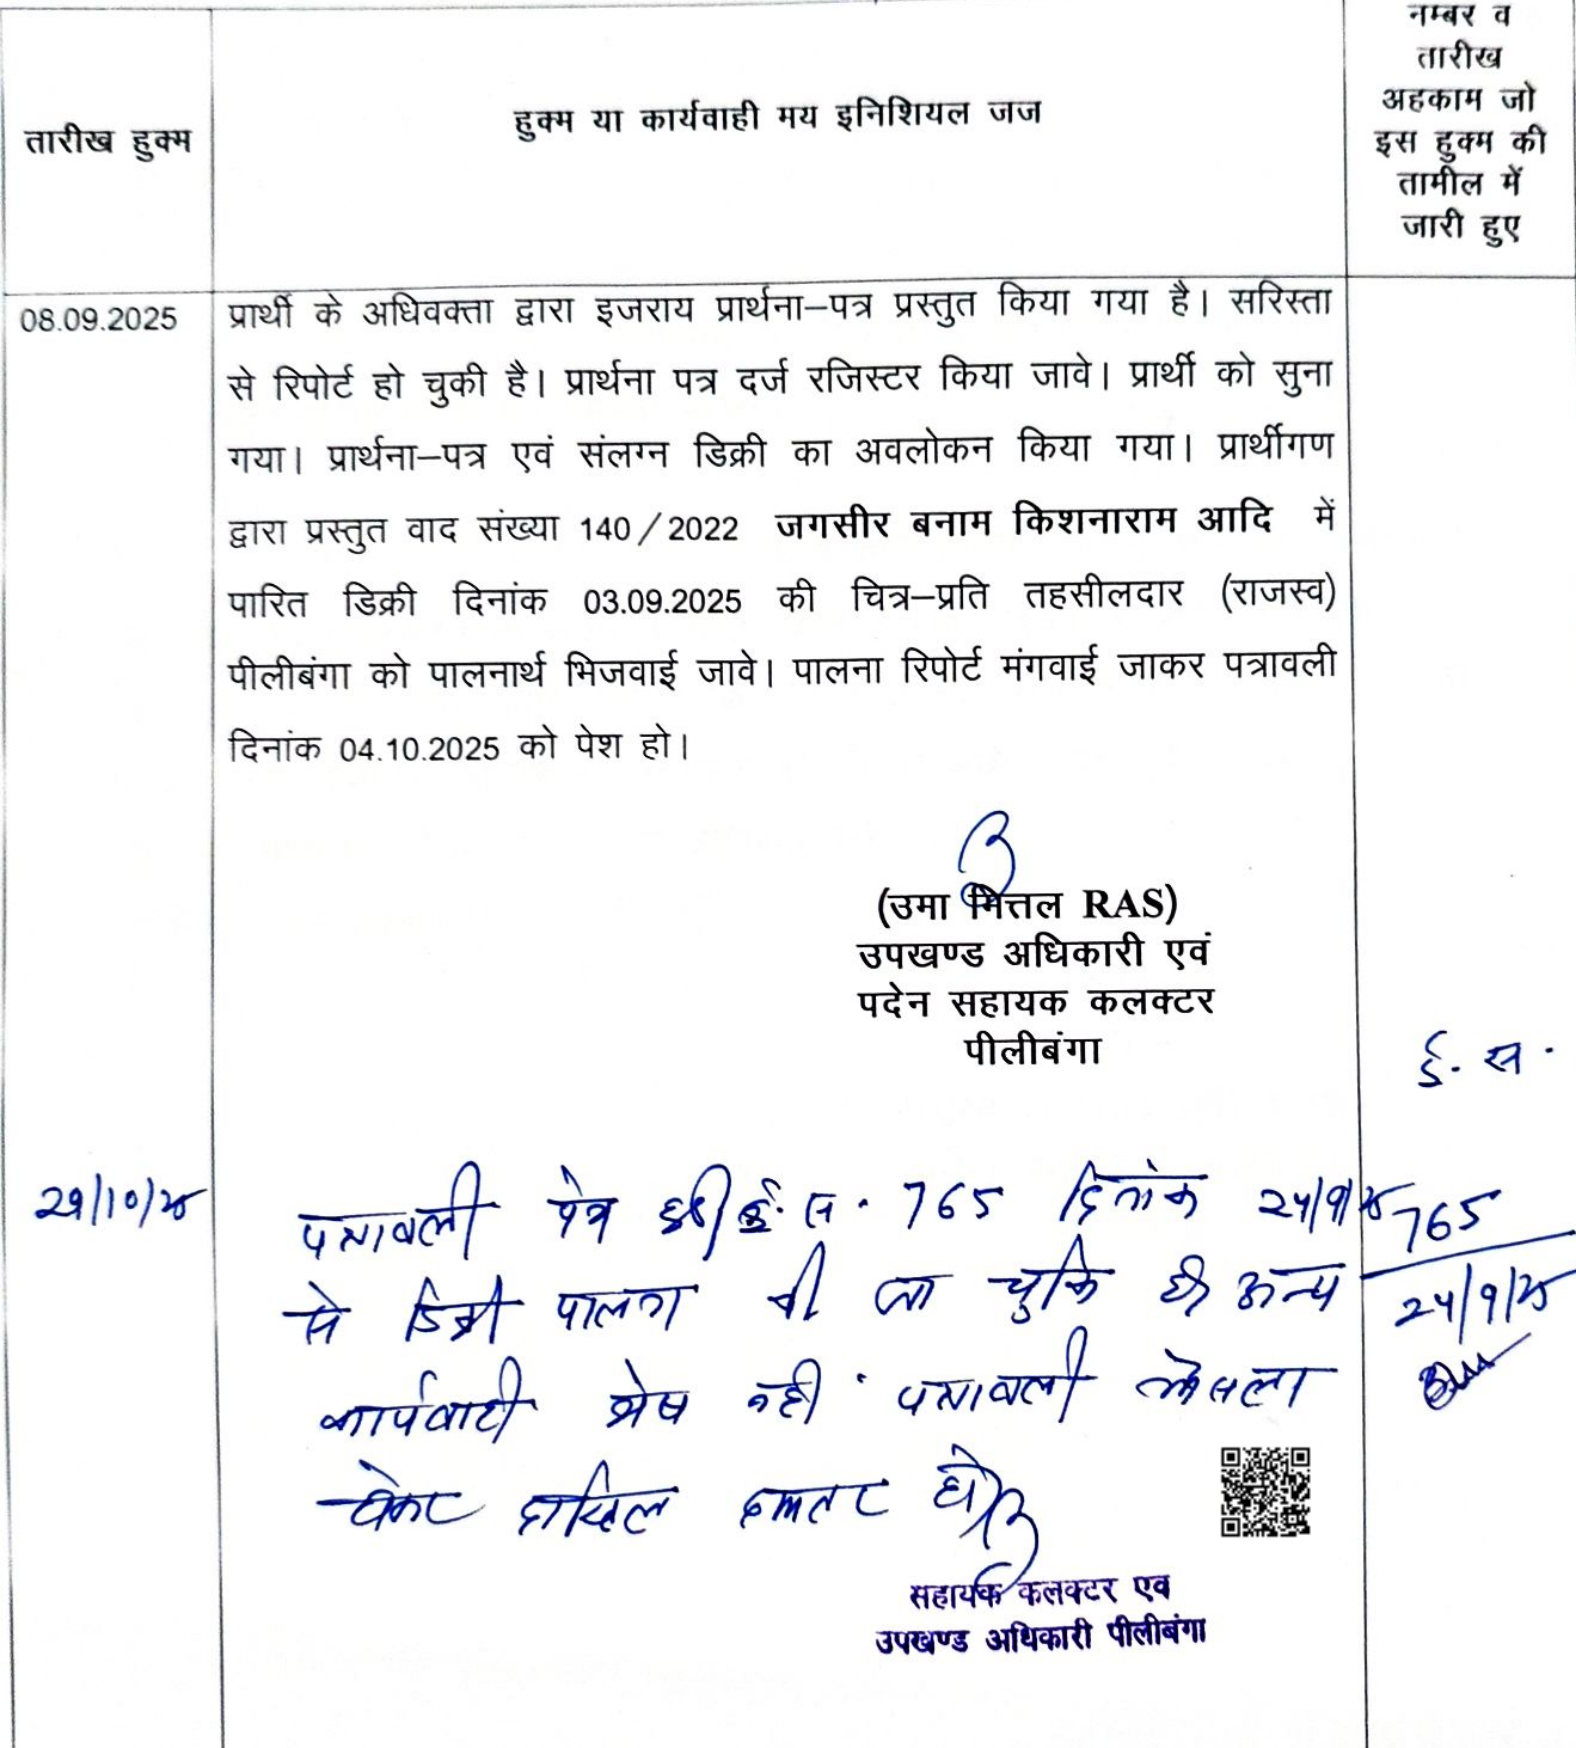 तारीख हुक्म
हुक्म या कार्यवाही मय इनिशियल जज
नम्बर व
तारीख
अहकाम जो
इस हुक्म की
तामील में
जारी हुए
08.09.2025
प्रार्थी के अधिवक्ता द्वारा इजराय प्रार्थना–पत्र प्रस्तुत किया गया है। सरिस्ता
से रिपोर्ट हो चुकी है। प्रार्थना पत्र दर्ज रजिस्टर किया जावे। प्रार्थी को सुना
गया। प्रार्थना–पत्र एवं संलग्न डिक्री का अवलोकन किया गया। प्रार्थीगण
द्वारा प्रस्तुत वाद संख्या 140/2022 जगसीर बनाम किशनाराम आदि में
पारित डिक्री दिनांक 03.09.2025 की चित्र–प्रति तहसीलदार (राजस्व)
पीलीबंगा को पालनार्थ भिजवाई जावे। पालना रिपोर्ट मंगवाई जाकर पत्रावली
दिनांक 04.10.2025 को पेश हो।
(उमा मित्तल RAS)
उपखण्ड अधिकारी एवं
पदेन सहायक कलक्टर
पीलीबंगा
ई. स.
29/10/25
पत्रावली पेश हुई ई. स. 765 दिनांक 24/9/25
से डिक्री पालना की जा चुकि है अन्य
कार्यवाही शेष नही पत्रावली फैसला
होकर दाखिल दफ्तर हो
765
24/9/25
सहायक कलक्टर एव
उपखण्ड अधिकारी पीलीबंगा